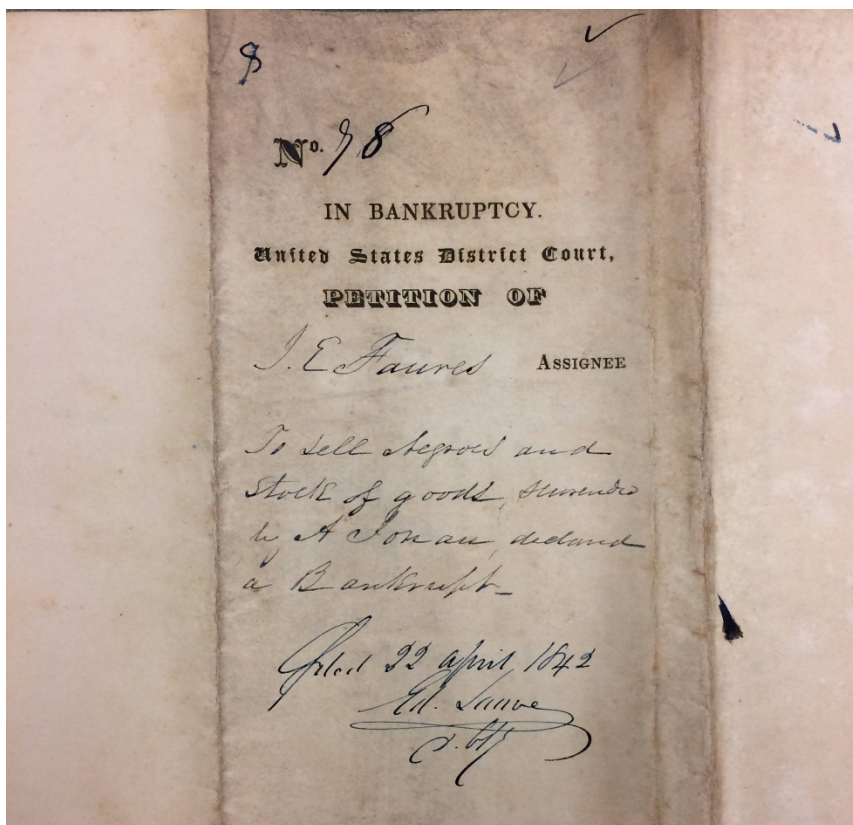 8
No. 78
IN BANKRUPTCY.
United States District Court,
PETITION OF
J. E Faures ASSIGNEE
To sell Negroes and
stock of goods,
by A declared
a Bankrupt
filed 22 april, 1842
Ed. Lauve